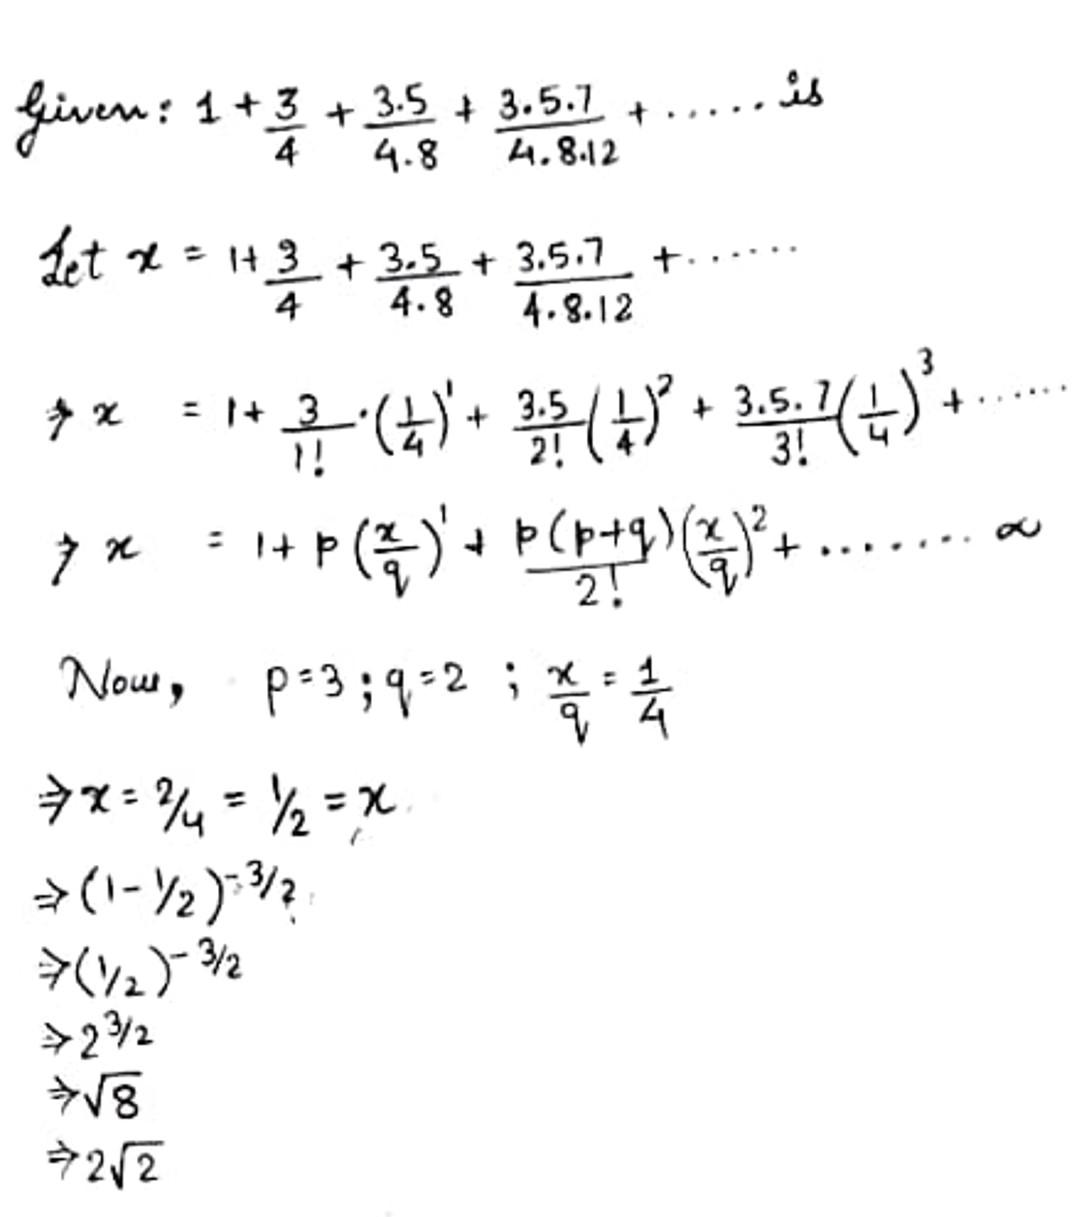 Given: 1 + 3/4 + 3.5/4.8 + 3.5.7/4.8.12 + ...... is
Let x = 1+ 3/4 + 3.5/4.8 + 3.5.7/4.8.12 + ......
⇒ x = 1+ 3/1! . (1/4)^1 + 3.5/2! (1/4)^2 + 3.5.7/3! (1/4)^3 + ......
⇒ x = 1+ p (x/q)^1 + p(p+q)/2! (x/q)^2 + ....... ∞
Now, p=3 ; q=2 ; x/q = 1/4
⇒ x = 2/4 = 1/2 = x
⇒ (1-1/2)^-3/2
⇒ (1/2)^-3/2
⇒ 2^3/2
⇒ √8
⇒ 2√2